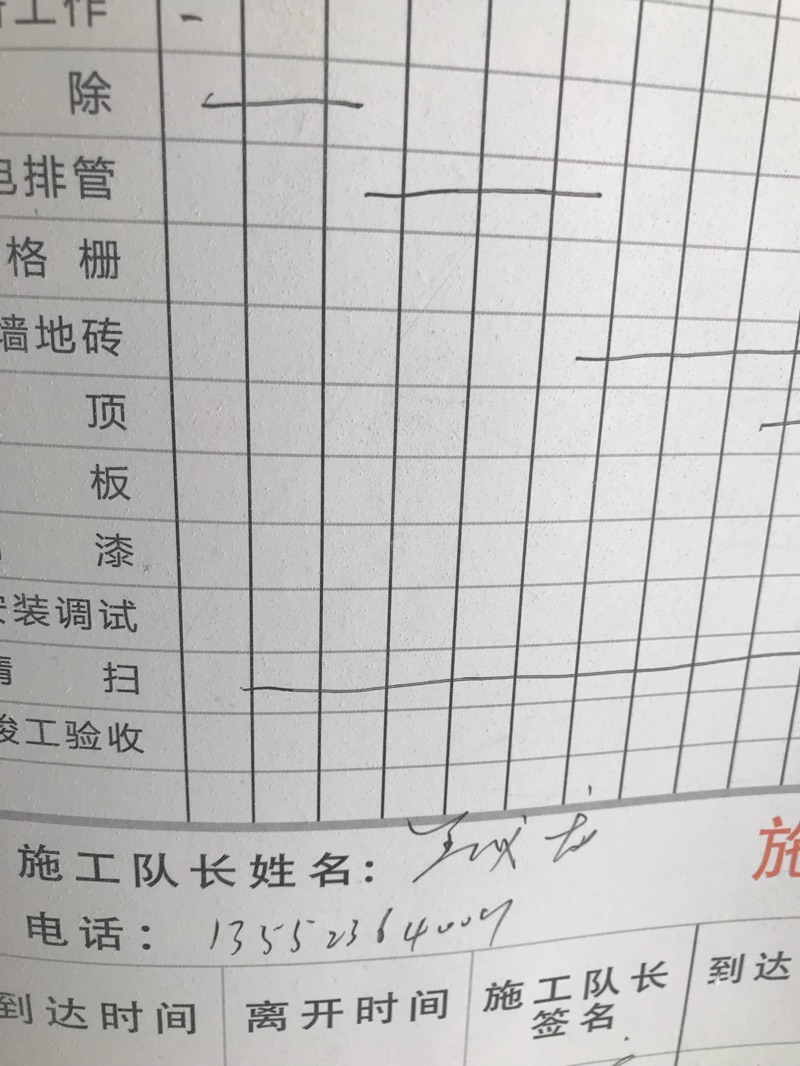 工作
除
电排管
格 栅
墙地砖
顶
板
漆
安装调试
清 扫
竣工验收
施工队长姓名: 施
电话: 13552364009
到达时间 离开时间 施工队长签名 到达